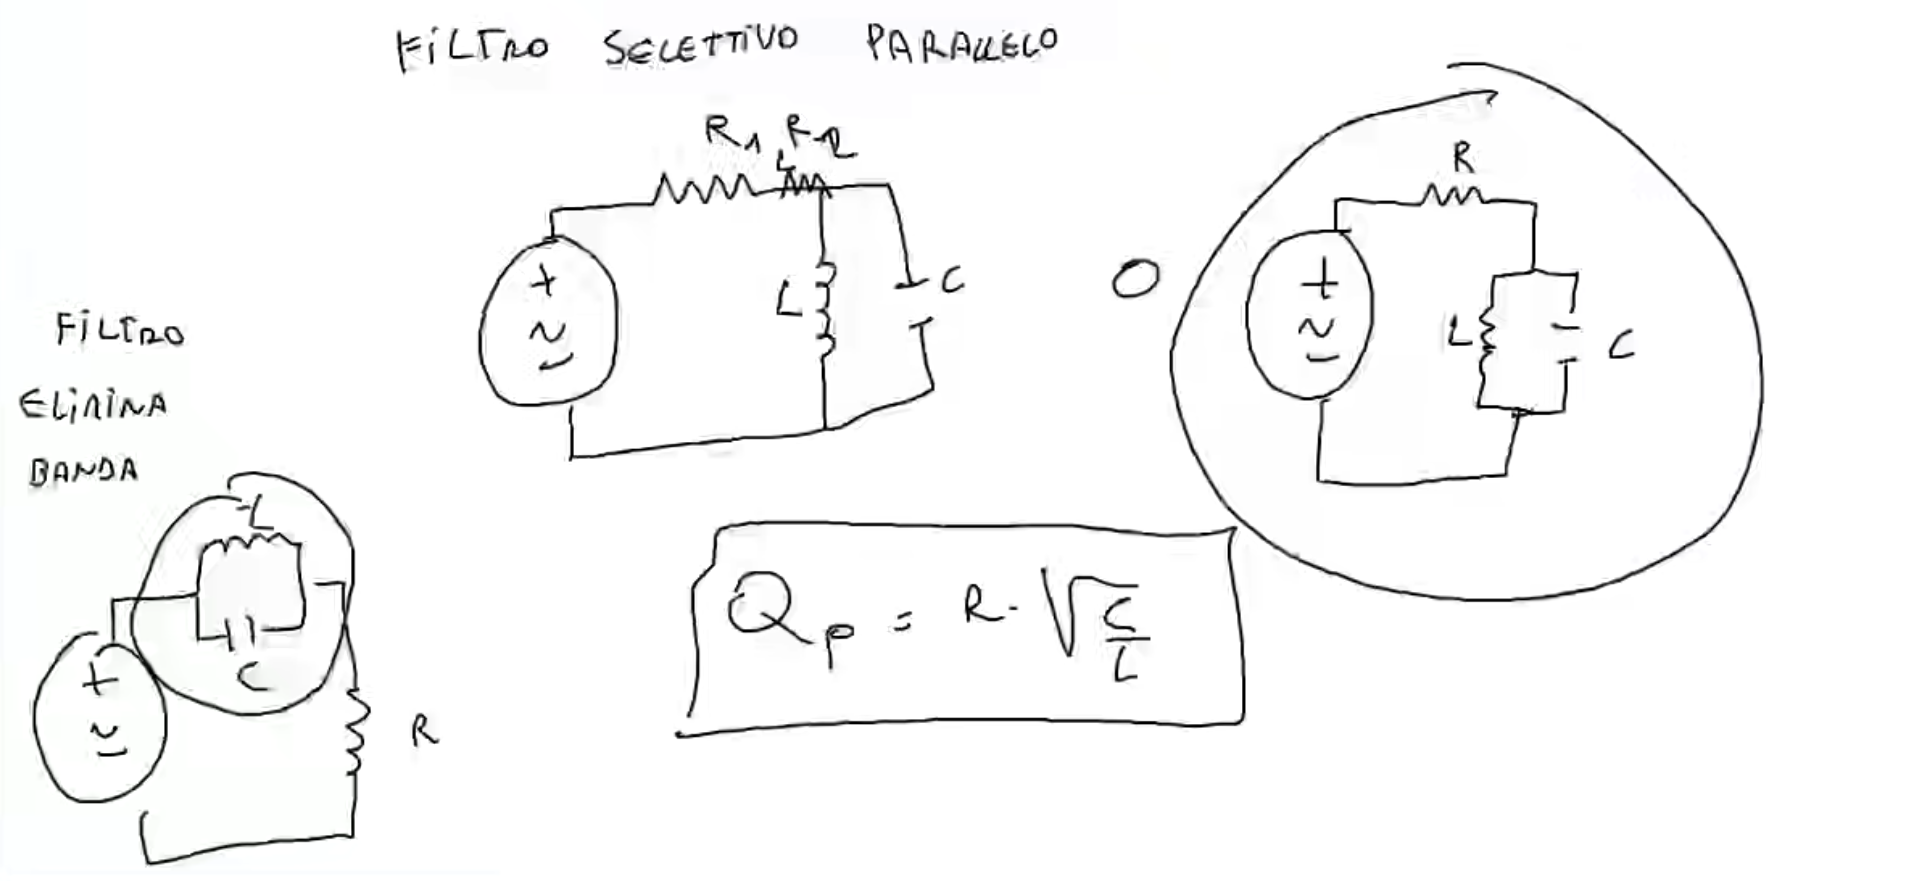 FILTRO SELETTIVO PARALLELO
R1 R2
L C
+
~
-
O
R
+
~
-
L C
FILTRO
ELIMINA
BANDA
L
C
+
~
-
R
Qp = R · √C/L